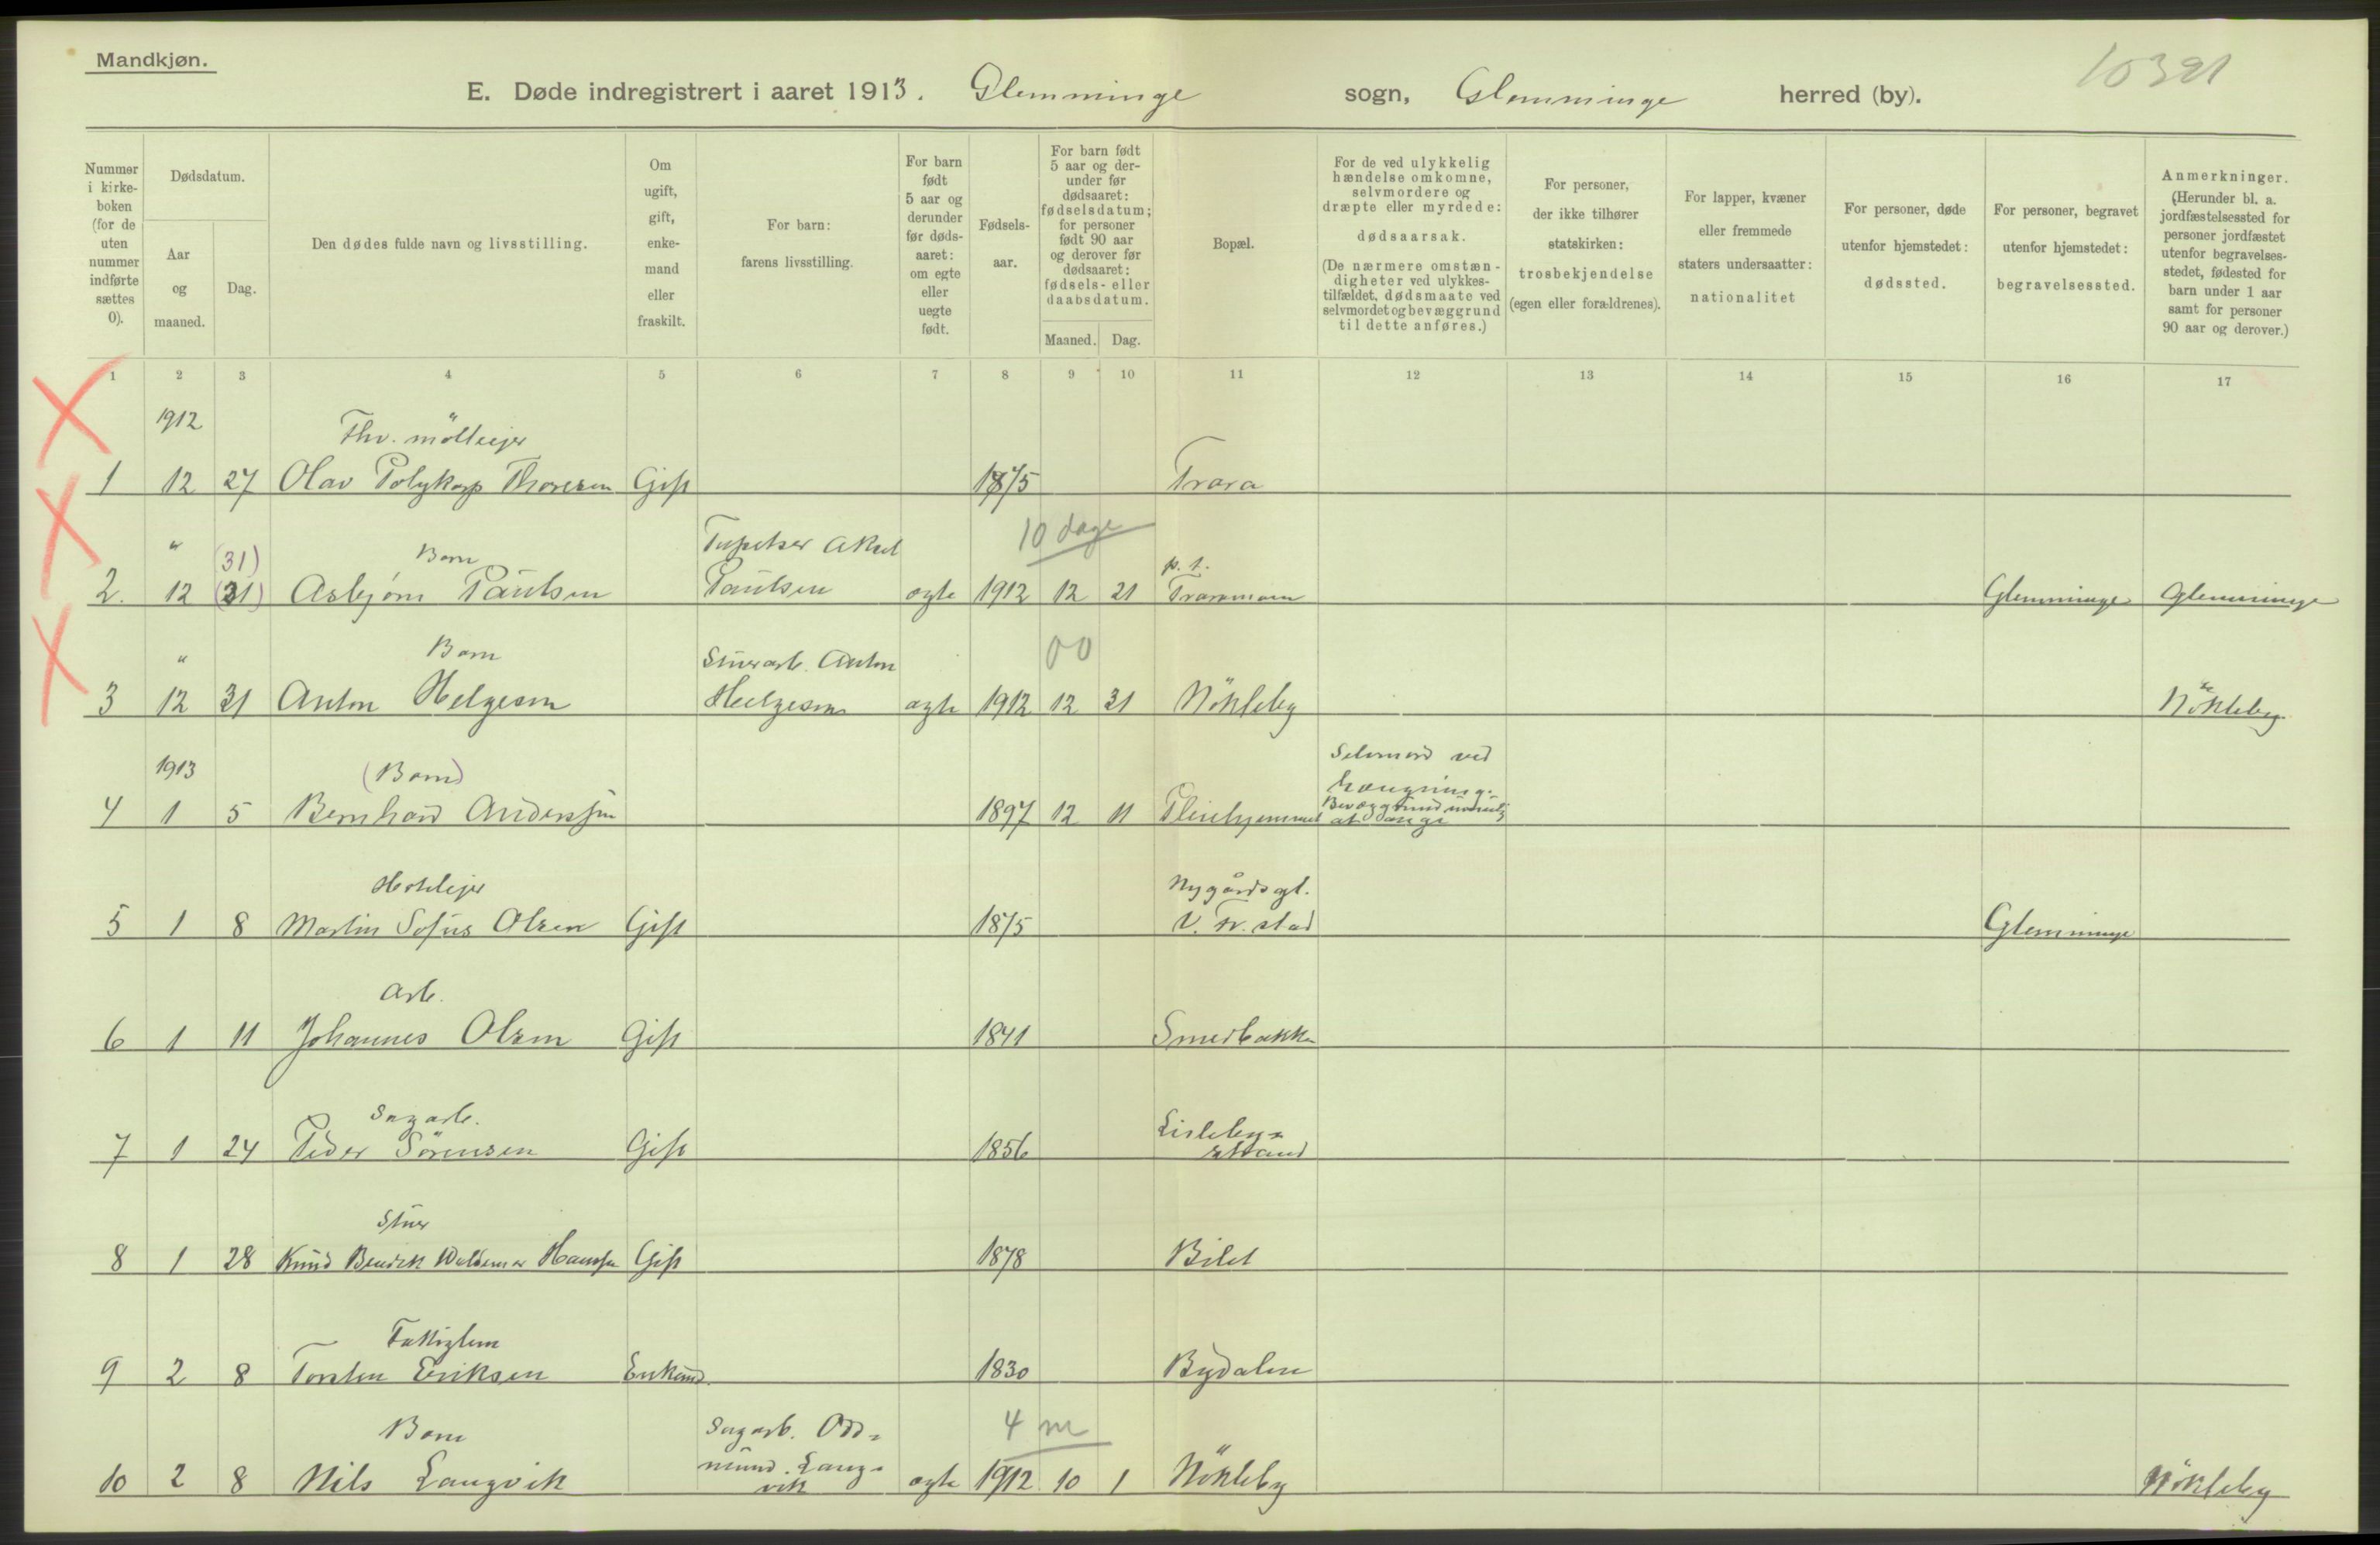 Mandkjøn.
10391
E. Døde indregistrert i aaret 1913. Glemminge sogn, Glemminge herred (by).
Nummer i kirke- boken (for de uten nummer indførte sættes 0).
Dødsdatum.
Aar og maaned.
Dag.
Den dødes fulde navn og livsstilling.
Om ugift, gift, enke- mand eller fraskilt.
For barn: farens livsstilling.
For barn født 5 aar og derunder før døds- aaret: om egte eller uegte født.
Fødsels- aar.
For barn født 5 aar og der- under før dødsaaret: fødselsdatum; for personer født 90 aar og derover før dødsaaret: fødsels- eller daabsdatum.
Maaned. Dag.
Bopæl.
For de ved ulykkelig hændelse omkomne, selvmordere og dræpte eller myrdede: dødsaarsak. (De nærmere omstæn- digheter ved ulykkes- tilfældet, dødsmaate ved selvmordet og bevæggrund til dette anføres.)
For personer, der ikke tilhører statskirken: trosbekjendelse (egen eller forældrenes).
For lapper, kvæner eller fremmede staters undersaatter: nationalitet
For personer, døde utenfor hjemstedet: dødssted.
For personer, begravet utenfor hjemstedet: begravelsessted.
Anmerkninger. (Herunder bl. a. jordfæstelsessted for personer jordfæstet utenfor begravelses- stedet, fødested for barn under 1 aar samt for personer 90 aar og derover.)
1 2 3 4 5 6 7 8 9 10 11 12 13 14 15 16 17
1912
Thv. mölleejer
1 12 27 Olav Polykarp Thoresen Gift 1875 Trara
" (31) Barn Aksel 10 dage p. t.
2. 12 (31) Asbjørn Paulsen Paulsen ægte 1912 12 21 Glemminge Glemminge
" Barn Stuerarb. Anton 00
3 12 31 Anton Helgesen Helgesen ægte 1912 12 31 Nökleby Nökleby
1913 (Barn) Selvmord ved
hængning.
4 1 5 Bernhard Anderssen 1897 12 11 Pleiehjemmet
Hotelejer Nygårdsgt.
5 1 8 Martin Sofus Olsen Gift 1875 V. Fr.stad Glemminge
Arb.
6 1 11 Johannes Olsen Gift 1841 Smedbakken
Sagarb. Lisleby=
7 1 24 Peder Sörensen Gift 1856 strand
Stuer
8 1 28 Knud Bendik Waldemar Hanssen Gift 1878 Bilet
Fattiglem
9 2 8 Torsten Eriksen Enkemd. 1830 Bydalen
Barn Sagarb. Odd= 4 m
mund Lang=
10 2 8 Nils Langvik vik ægte 1912 10 1 Nökleby Nökleby